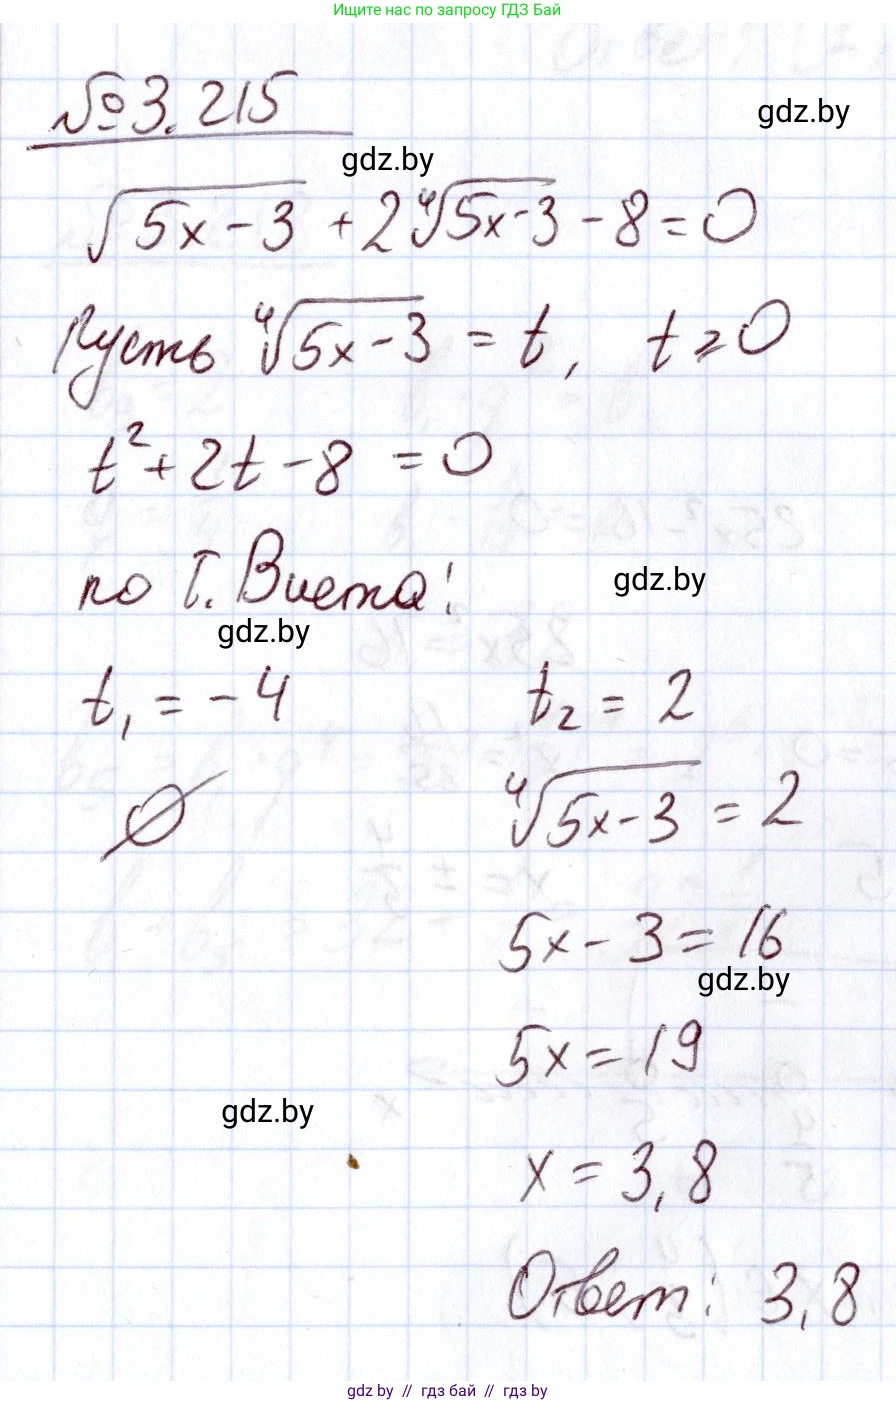 Ищите нас по запросу ГДЗ Бай
№3.215
gdz.by
gdz.by
√(5x-3) + 2∜(5x-3) - 8 = 0
Пусть ∜(5x-3) = t, t ≥ 0
t² + 2t - 8 = 0
по Т. Виета:
gdz.by
gdz.by
t₁ = -4 t₂ = 2
∅ ∜(5x-3) = 2
5x - 3 = 16
gdz.by
5x = 19
gdz.by
x = 3,8
Ответ: 3,8
gdz.by // гдз бай // гдз by